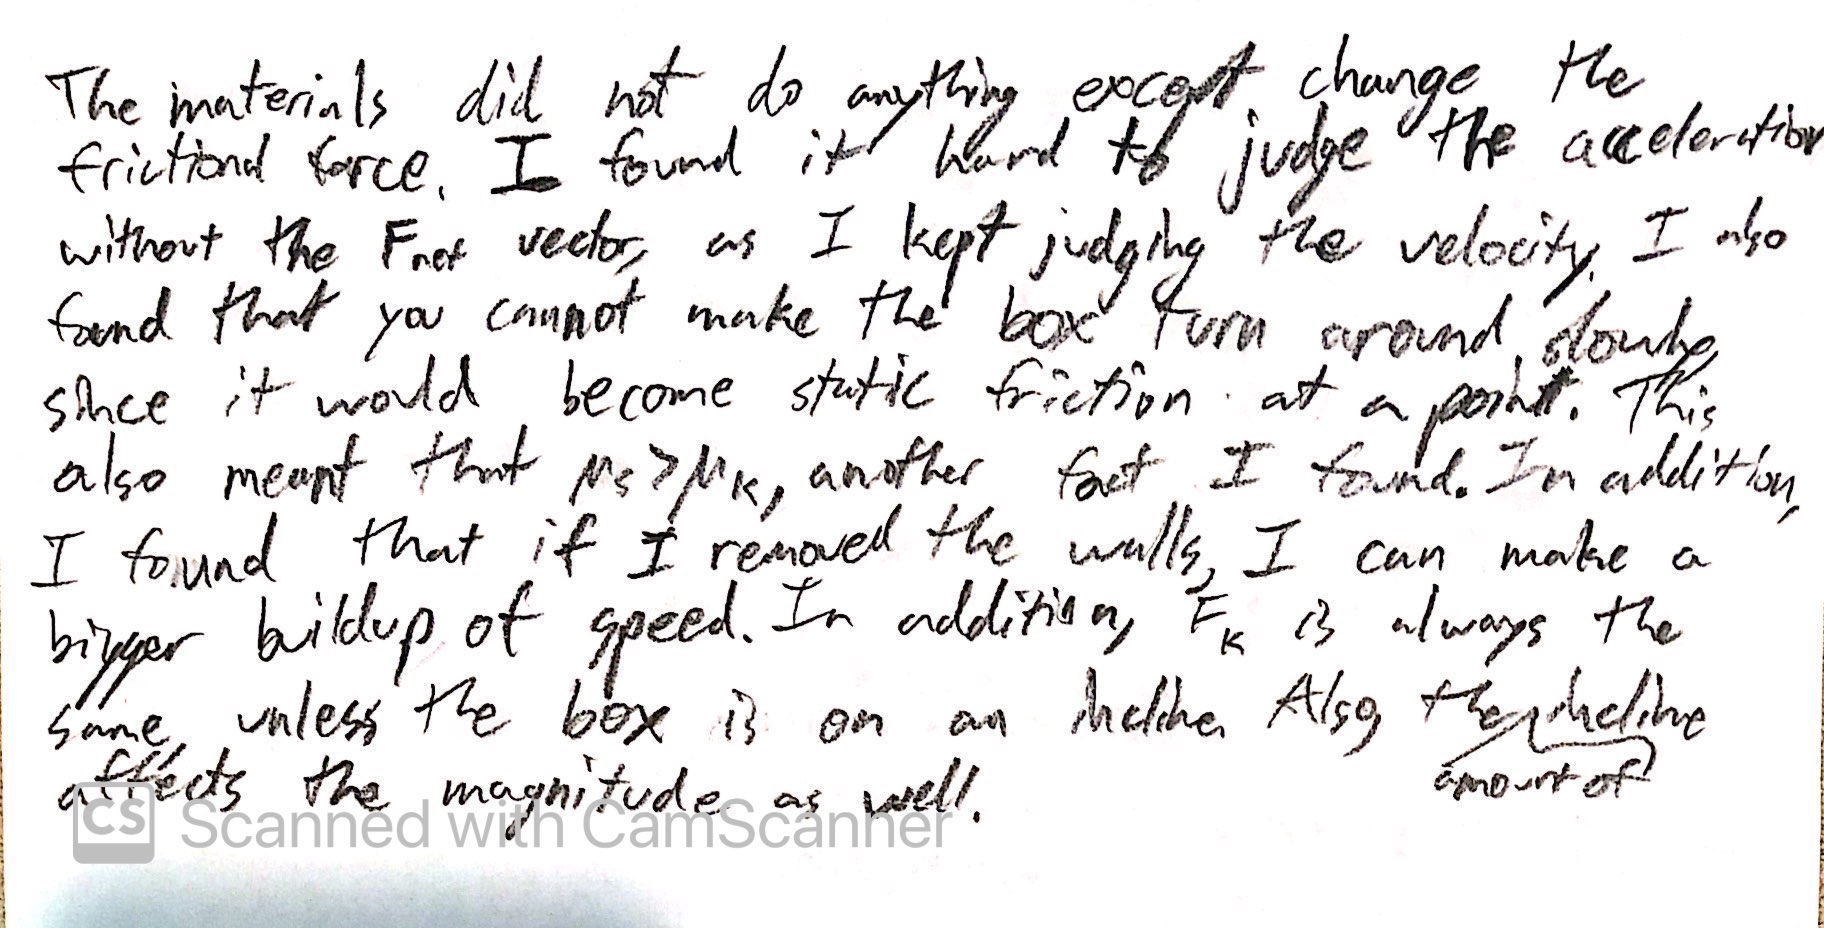 The materials did not do anything except change the
frictional force. I found it hard to judge the acceleration
without the Fnet vector, as I kept judging the velocity. I also
found that you cannot make the box turn around slowly
since it would become static friction at a point. This
also meant that μs>μK, another fact I found. In addition,
I found that if I removed the walls, I can make a
bigger buildup of speed. In addition, FK is always the
same, unless the box is on an incline. Also, the incline
amount of
affects the magnitude as well.
CS Scanned with CamScanner